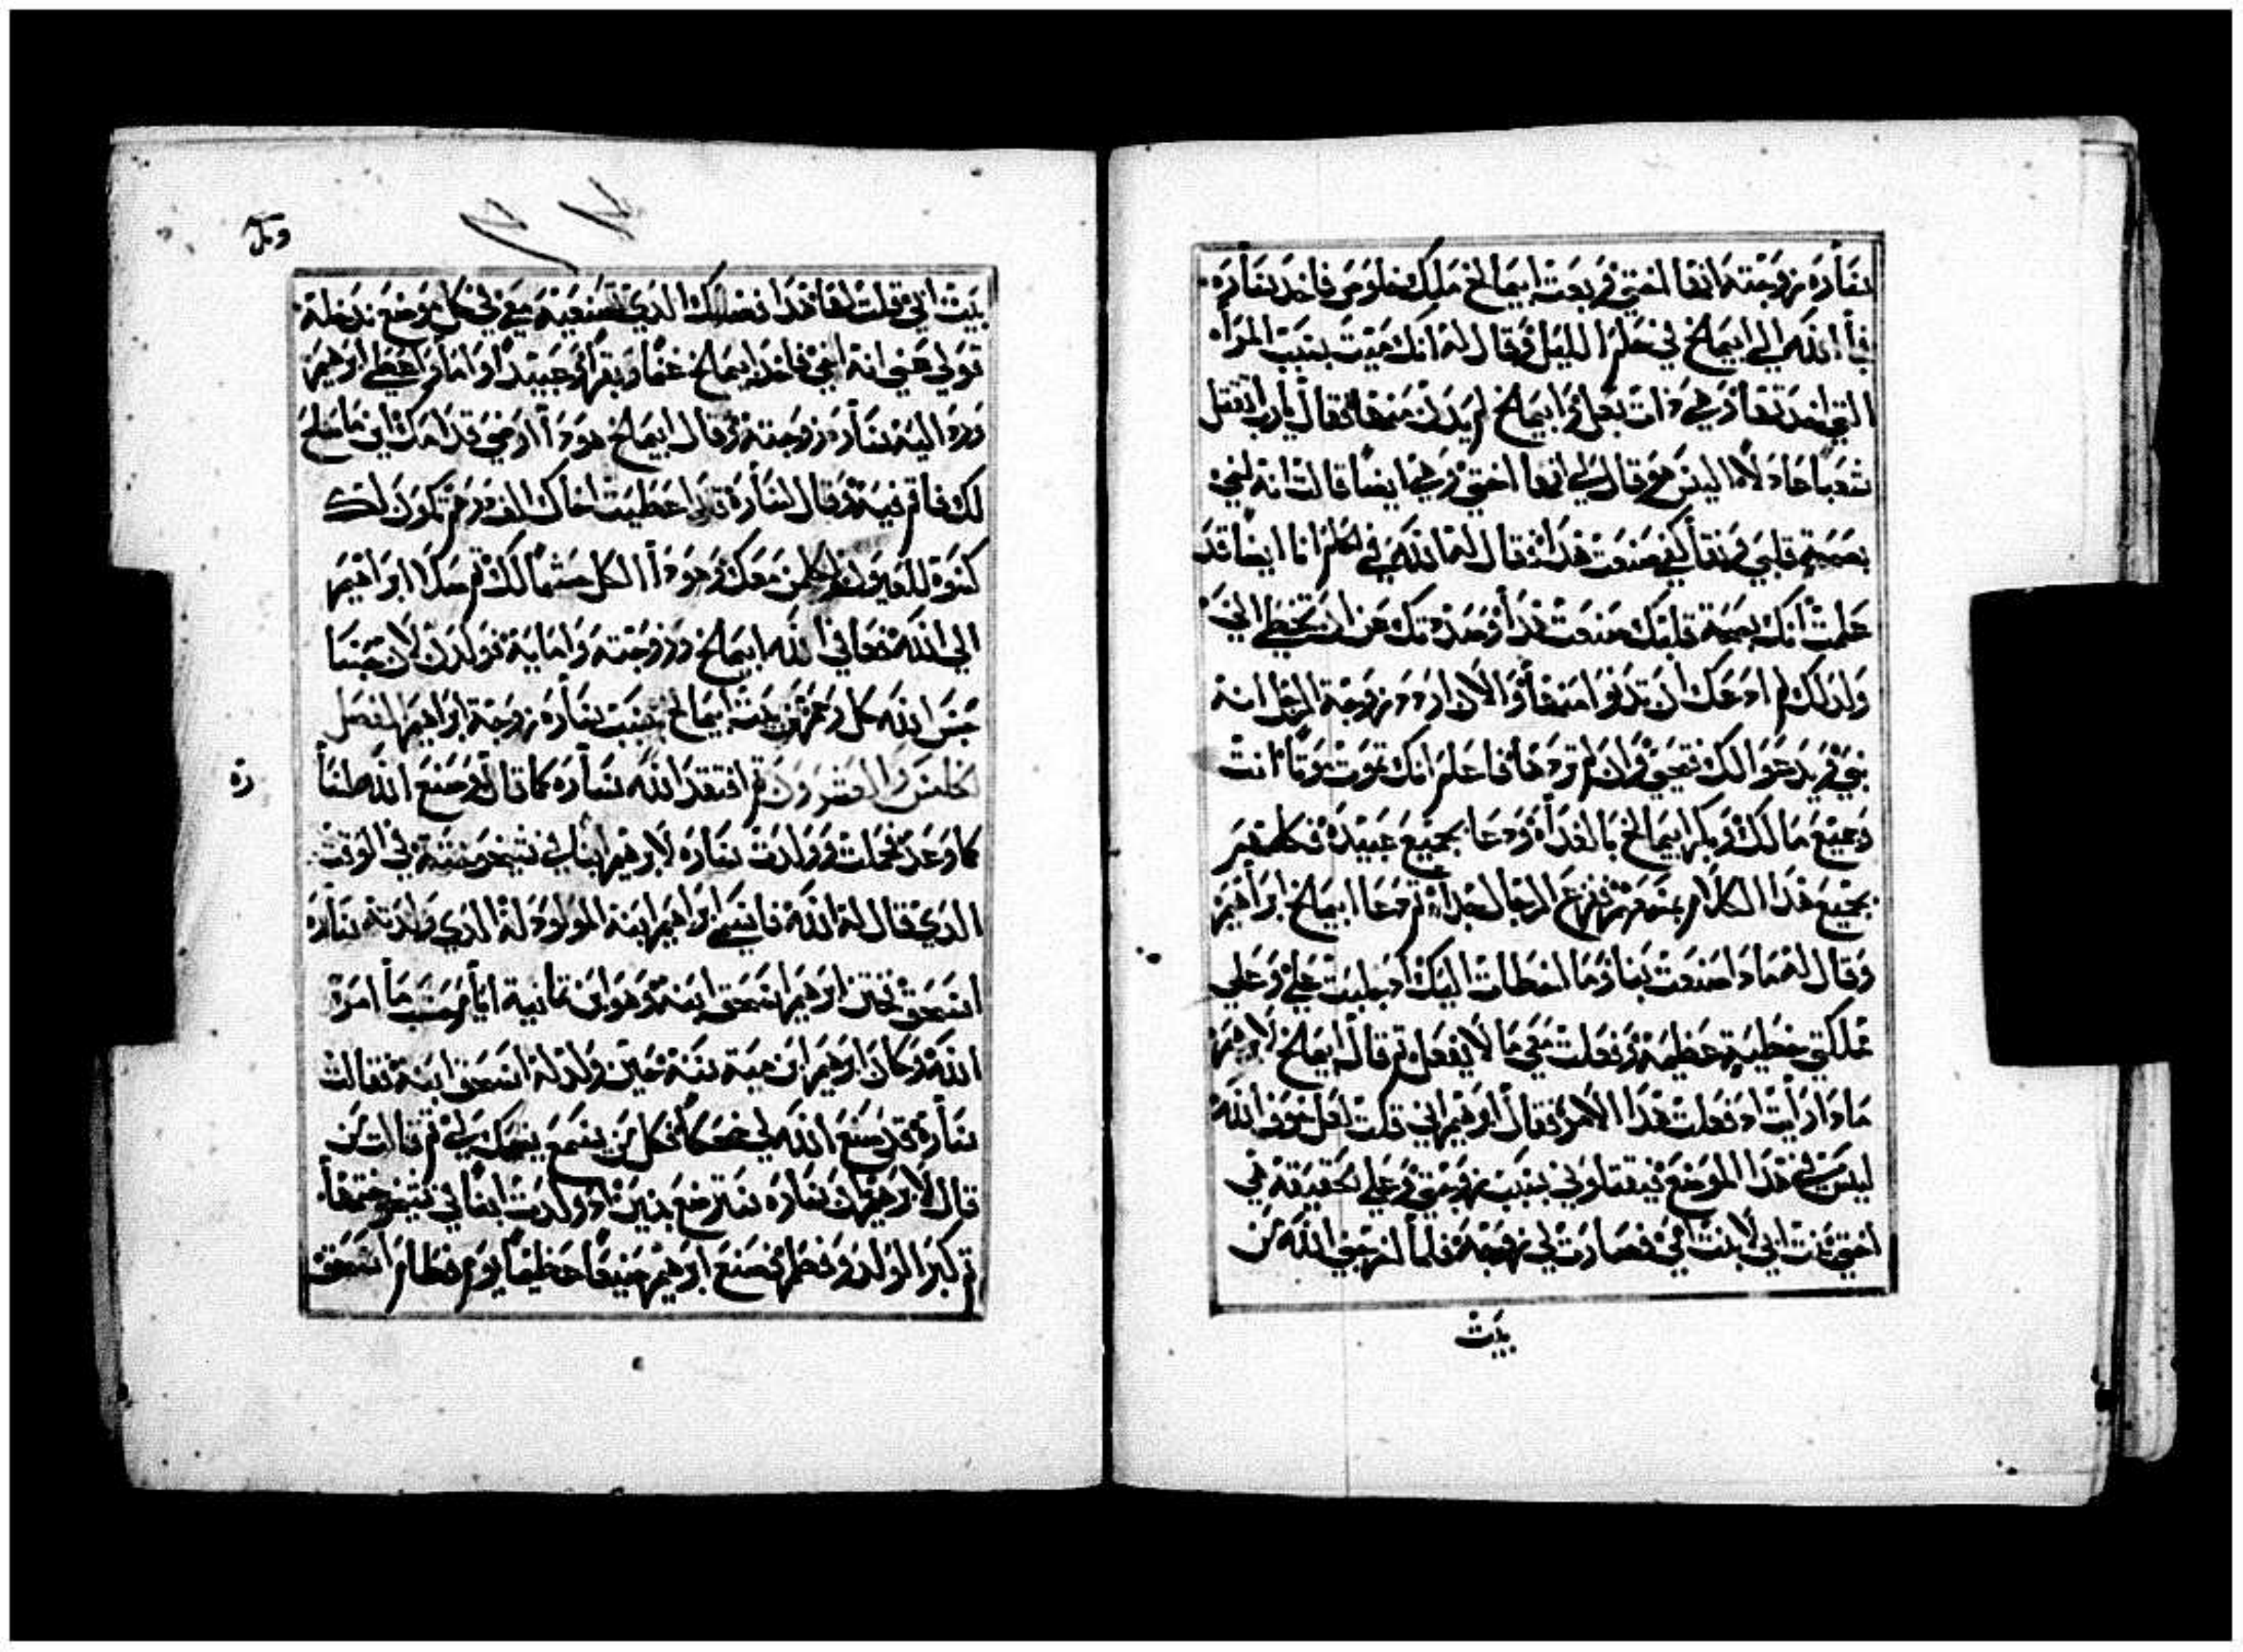 سارة زوجته انها اختي فبعت ابيمالخ ملك خلوص فاخد سارة
فاا الله الي ابيمالخ في حلم الليل وقال له انك ميت بسبب المراه
التي اخدتها وهي دات بعل وابيمالخ لم يدن منها فقال يارب اتقتل
شعبا جاهلا اليس هو قال لي انها اختي وهي ايضا قالت انه اخي
بصحة قلبي ونقا كفي صنعت هدا فقال له الله في الحلم انا ايضا قد
علمت انك بصحة قلبك صنعت هدا وصدتك عن ان تخطي الي
ولدلك لم ادعك ان تدنوا منها والان اردد زوجة الرجل انه
نبي ويدعوا لك فتحي وان لم تردها فاعلم انك تموت موتا انت
وجميع مالك وبكر ابيمالخ بالغداه ودعا بجميع عبيده فكلمهم
بجميع هدا الكلام بمسامعهم ففزع الرجال جدا ثم دعا ابيمالخ ابراهيم
وقال له مادا صنعت بنا وما اخطات اليك اد جلبت علي وعلي
مملكتي خطية عظيمة وفعلت معي ما لا يفعل ثم قال ابيمالخ لابرهيم
مادا رايت اد فعلت هدا الامر فقال ابرهيم اني قلت لعل خوف الله
ليس في هدا الموضع فيقتلوني بسبب زوجتي وعلي الحقيقة هي
اختي بنت ابي لا بنت امي فصارت لي زوجة فلما اخرجني الله من
بيت
بيت ابي قلت لها هدا فضلك الدي تصنعيه معي في كل موضع ندخله
تولي عني انه اخي فاخد ابيمالخ غنما وبقرا وعبيدا واماا واعطي ابرهيم
ورد اليه سارة زوجته وقال ابيمالخ هودا ارضي قدامك اين ما صلح
لك فاقم فيه وقال لسارة قد اعطيت اخاك الف درهم تكون لك
كسوة للعيون ولكل من معك وهودا الكل مثما لك ثم صلا ابراهيم
الي الله فعافي الله ابيمالخ وزوجته واماية فولدن لان حبسا
حبس الله كل رحم من بيت ابيمالخ بسبب سارة زوجة ابراهيم الفصل
الخامس والعشرون ثم افتقد الله سارة كما قال وصنع الله لها
كما وعد فحملت وولدت سارة لابرهيم ابنا في شيخوخته في الوقت
الدي قال له الله فاسمي ابراهيم ابنه المولود له الدي ولدته سارة
اسحق فختن ابرهيم اسحق ابنه وهو ابن تمانية ايام حسب ما امره
الله وكان ابرهيم ابن مية سنة حين ولد له اسحق ابنه فقالت
سارة قد صنع الله لي ضحكا فكل من يسمع يضحك لي ثم قالت من
قال لابرهيم ان سارة سترضع بنين اد ولدت ابنا في شيخوختها
ثم كبر الولد وفطم فصنع ابرهيم ضيفا عظيما يوم فطام اسحق